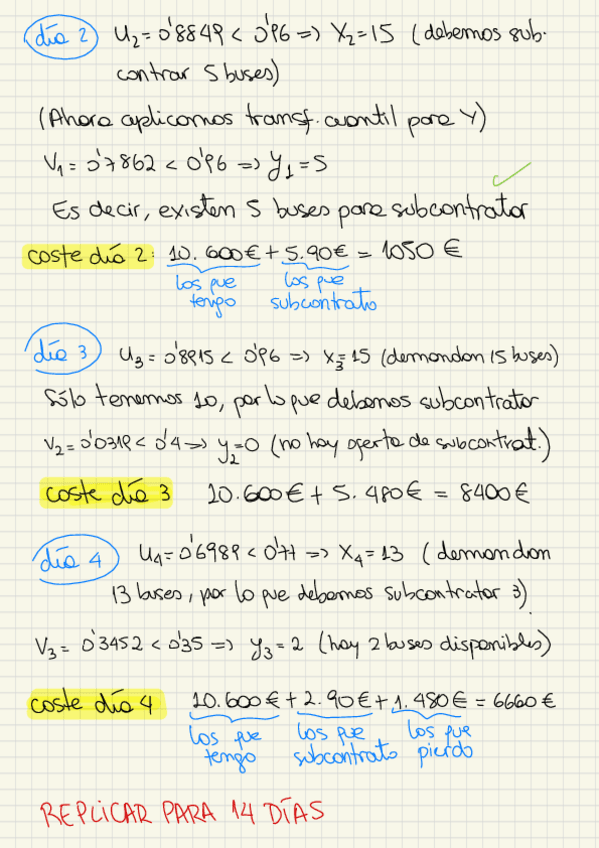 día 2 U₂ = 0'8849 < 0'96 => X₂ = 15 (debemos sub-
contrar 5 buses)
(Ahora aplicamos transf. cuantil para Y)
V₁ = 0'7862 < 0'96 => y₁ = 5
Es decir, existen 5 buses para subcontratar
coste día 2: 10.600€ + 5.90€ = 1050 €
los que tengo los que subcontrato
día 3 U₃ = 0'8915 < 0'96 => X₃ = 15 (demandan 15 buses)
Sólo tenemos 10, por lo que debemos subcontratar
V₂ = 0'0319 < 0'4 => y₂ = 0 (no hay oferta de subcontrat.)
coste día 3 10.600€ + 5.480€ = 8400€
día 4 U₄ = 0'6989 < 0'71 => X₄ = 13 (demandan
13 buses, por lo que debemos subcontratar 3)
V₃ = 0'3452 < 0'35 => y₃ = 2 (hay 2 buses disponibles)
coste día 4 10.600€ + 2.90€ + 1.480€ = 6660€
los que tengo los que subcontrato los que pierdo
REPLICAR PARA 14 DÍAS